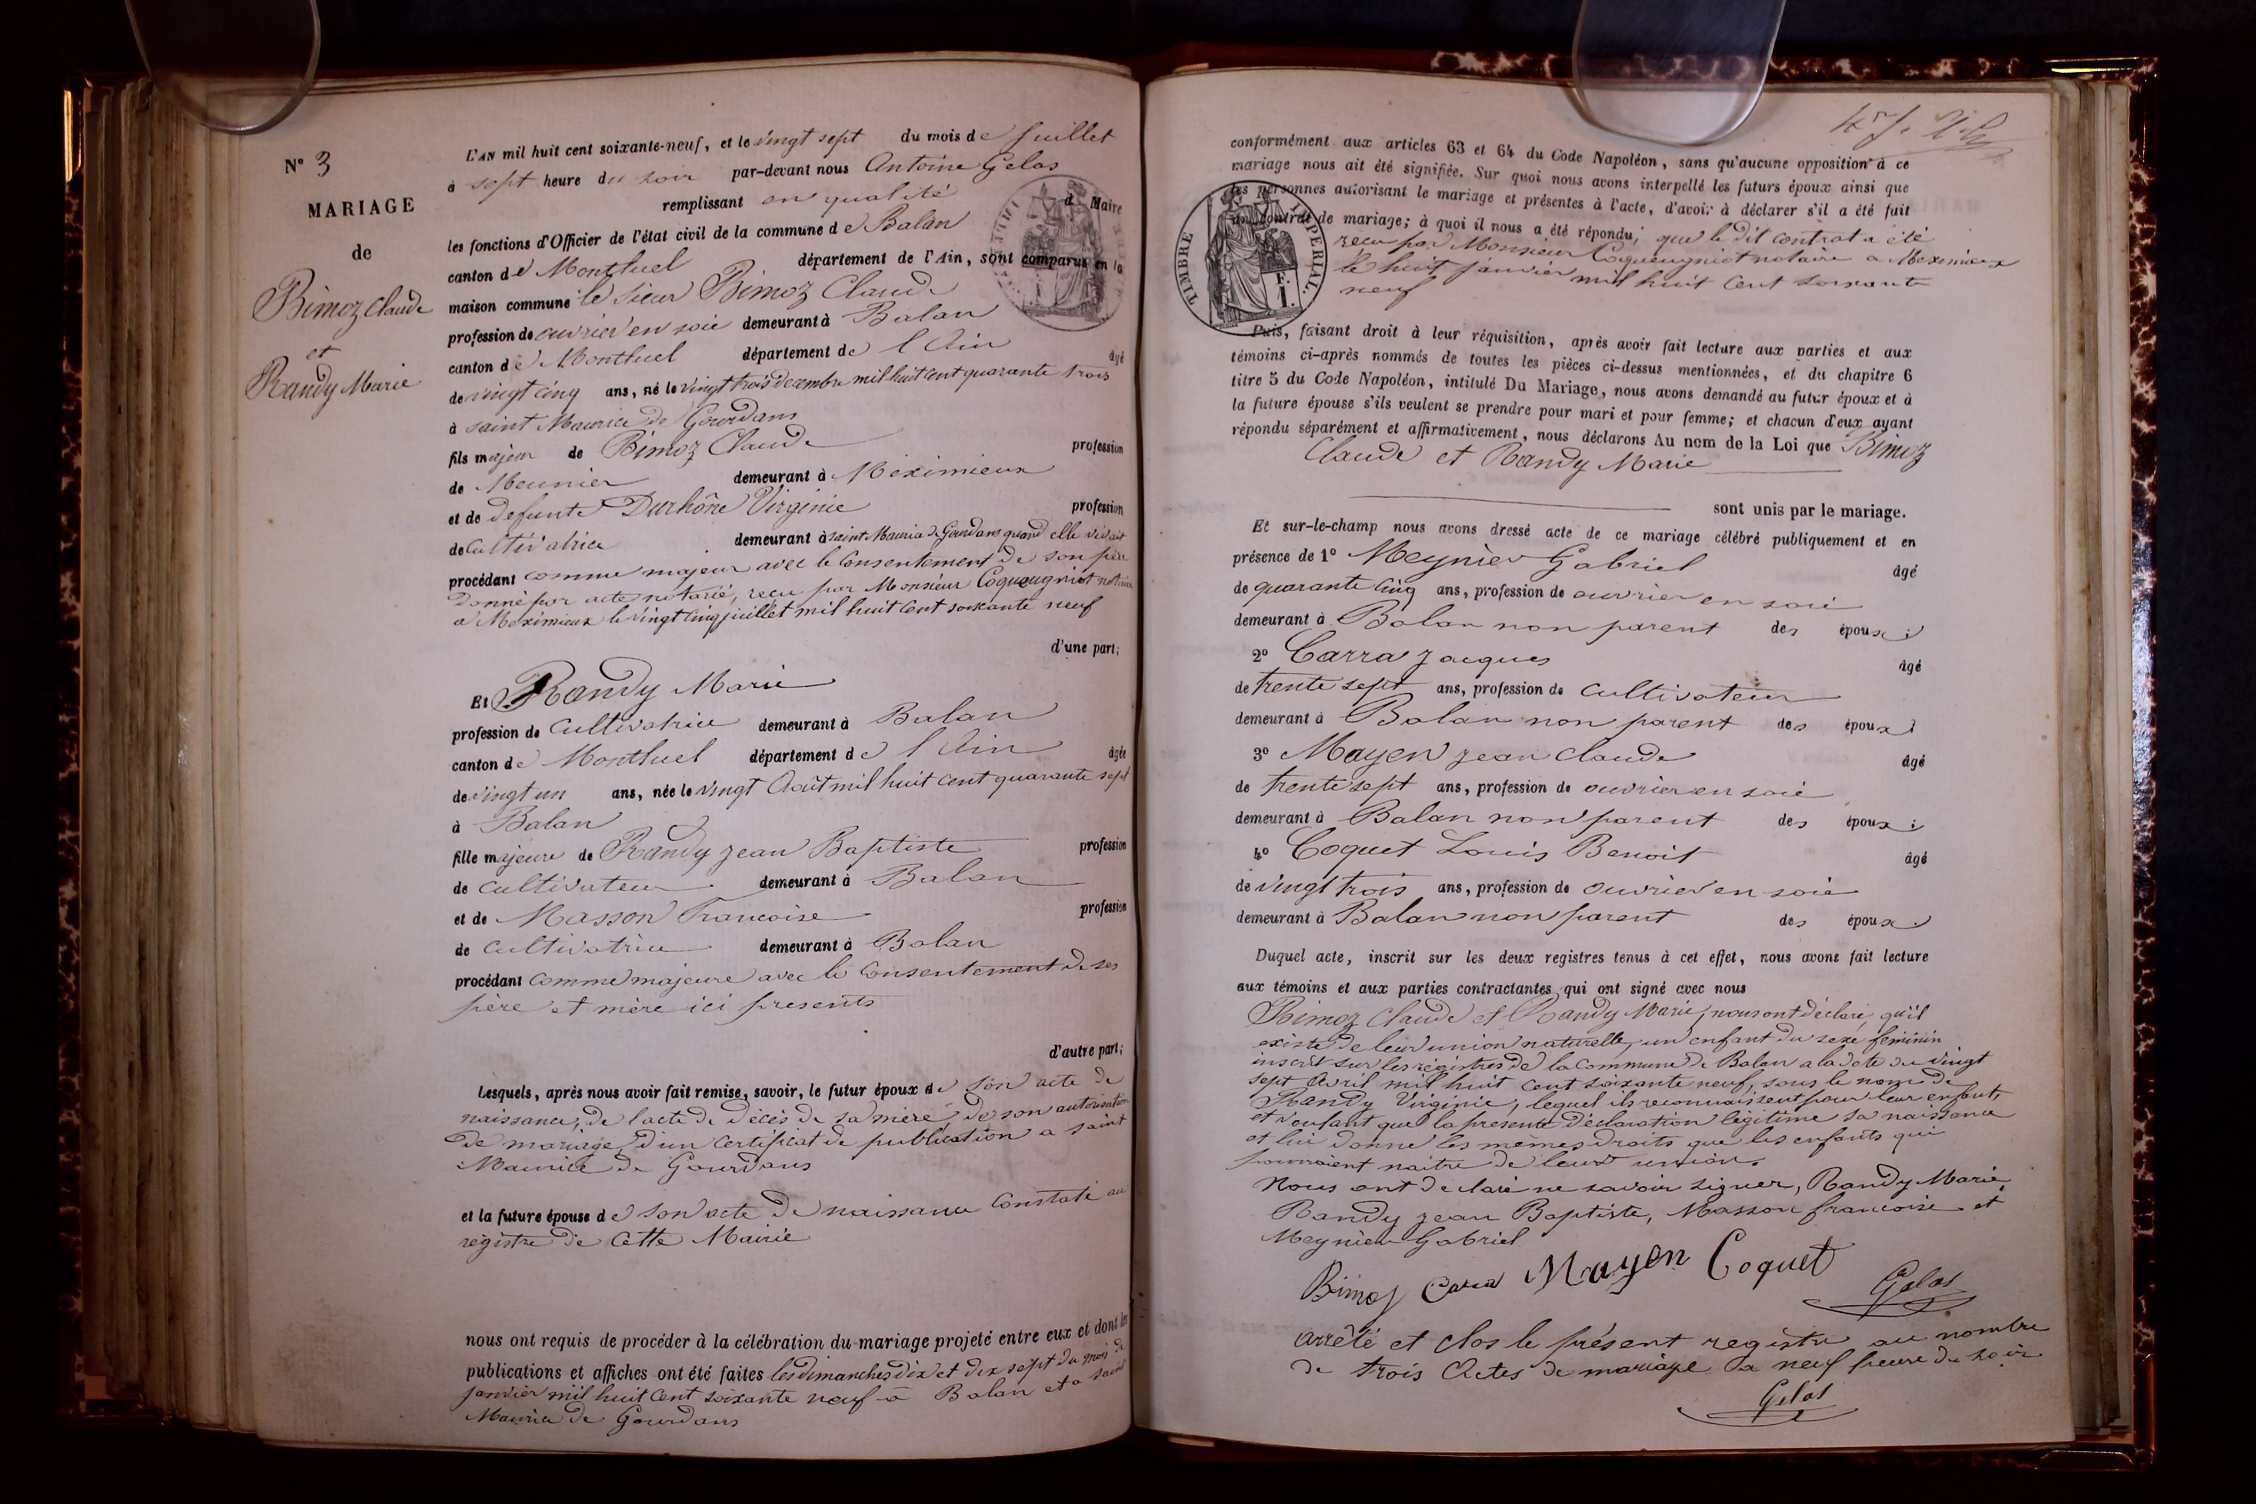 N° 3
MARIAGE
de
Bimoz Claude
et
Randy Marie
L'AN mil huit cent soixante-neuf, et le vingt sept du mois de juillet
à sept heure du soir par-devant nous Antoine Gelas
remplissant en qualité d Maire
les fonctions d'Officier de l'état civil de la commune de Balan
canton de Montluel département de l'Ain, sont comparus en la
maison commune le sieur Bimoz Claude
profession de ouvrier en soie demeurant à Balan
canton de Montluel département de l'Ain âgé
de vingt cinq ans, né le vingt trois decembre mil huit cent quarante trois
à saint Maurice de Gourdans
fils majeur de Bimoz Claude profession
de Meunier demeurant à Méximieux
et de defunte Durhône Virginie profession
de Cultivatrice demeurant à saint Maurice de Gourdans quand elle vivait
procédant comme majeur avec le consentement de son père
donné par acte notarié, reçu par Monsieur Coqueugniot notaire
a Méximieux le vingt cinq juillet mil huit cent soixante neuf
d'une part;
Et Randy Marie
profession de Cultivatrice demeurant à Balan
canton de Montluel département de l'Ain âgée
de vingt un ans, née le vingt Août mil huit cent quarante sept
à Balan
fille majeure de Randy jean Baptiste profession
de Cultivateur demeurant à Balan
et de Masson Francoise profession
de Cultivatrice demeurant à Balan
procédant comme majeure avec le consentement de ses
père et mère ici présents
d'autre part;
Lesquels, après nous avoir fait remise, savoir, le futur époux de son acte de
naissance, de l'acte de décès de sa mère, de son autorisation
de mariage, d'un certificat de publication a saint
Maurice de Gourdans
et la future épouse de son acte de naissance constaté au
registre de cette Mairie
nous ont requis de procéder à la célébration du mariage projeté entre eux et dont les
publications et affiches ont été faites les dimanches dix et dix sept du mois de
janvier mil huit cent soixante neuf à Balan et a saint
Maurice de Gourdans
TIMBRE IMPERIAL
F.
1.
conformément aux articles 63 et 64 du Code Napoléon, sans qu'aucune opposition à ce
mariage nous ait été signifiée. Sur quoi nous avons interpellé les futurs époux ainsi que
les personnes autorisant le mariage et présentes à l'acte, d'avoir à déclarer s'il a été fait
un contrat de mariage; à quoi il nous a été répondu, que le dit contrat a été
recu par Monsieur Coqueugniot notaire a Méximieux
le huit janvier mil huit cent soixante
neuf
Puis, faisant droit à leur réquisition, après avoir fait lecture aux parties et aux
témoins ci-après nommés de toutes les pièces ci-dessus mentionnées, et du chapitre 6
titre 5 du Code Napoléon, intitulé Du Mariage, nous avons demandé au futur époux et à
la future épouse s'ils veulent se prendre pour mari et pour femme; et chacun d'eux ayant
répondu séparément et affirmativement, nous déclarons Au nom de la Loi que Bimoz
Claude et Randy Marie
sont unis par le mariage.
Et sur-le-champ nous avons dressé acte de ce mariage célébré publiquement et en
présence de 1° Meynier Gabriel âgé
de quarante cinq ans, profession de ouvrier en soie
demeurant à Balan non parent des époux;
2° Carra jacques âgé
de trente sept ans, profession de Cultivateur
demeurant à Balan non parent des époux;
3° Mayen jean Claude âgé
de trente sept ans, profession de ouvrier en soie
demeurant à Balan non parent des époux;
4° Coquet Louis Benoit âgé
de vingt trois ans, profession de ouvrier en soie
demeurant à Balan non parent des époux.
Duquel acte, inscrit sur les deux registres tenus à cet effet, nous avons fait lecture
aux témoins et aux parties contractantes qui ont signé avec nous
Bimoz Claude et Randy Marie, nous ont déclaré, qu'il
existe de leur union naturelle, un enfant du sexe féminin
inscrit sur les régistres de la commune de Balan a la date du vingt
sept Avril mil huit cent soixante neuf, sous le nom de
Randy Virginie, lequel ils reconnaissent pour leur enfant,
et veulent que la presente déclaration légitime sa naissance
et lui donne les mêmes droits que les enfants qui
pourraient naitre de leur union.
Nous ont declaré ne savoir signer, Randy Marie,
Randy jean Baptiste, Masson francoise et
Meynier Gabriel
Bimoz Cara Mayen Coquet
Gelas
Arrêté et clos le présent registre au nombre
de trois Actes de mariage a neuf heure du soir
Gelas